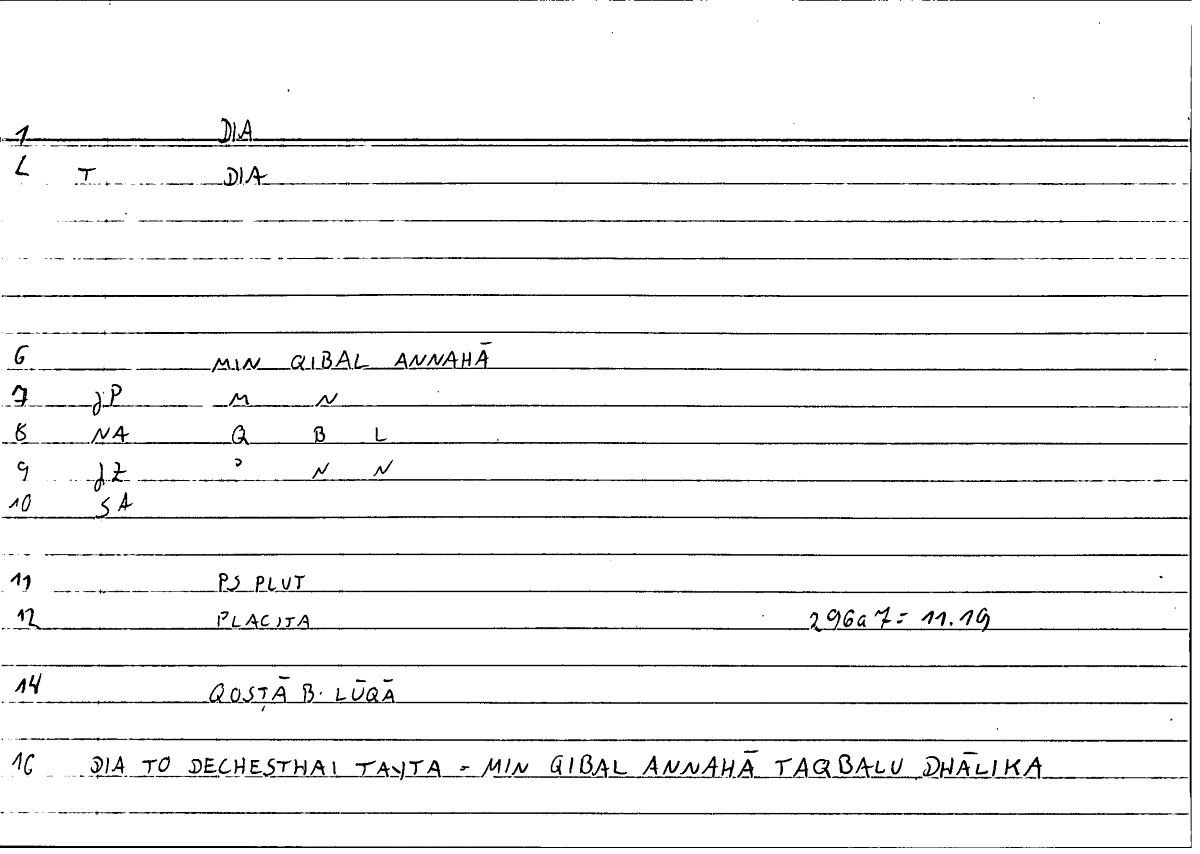 1 DIA
2 T DIA
6 MIN QIBAL ANNAHĀ
7 JP M N
8 NA Q B L
9 JZ ʾ N N
10 SA
11 PS PLUT
12 PLACITA 296a7 = 11.19
14 QOSṬĀ B. LŪQĀ
16 DIA TO DECHESTHAI TAYTA = MIN QIBAL ANNAHĀ TAQBALU DHĀLIKA